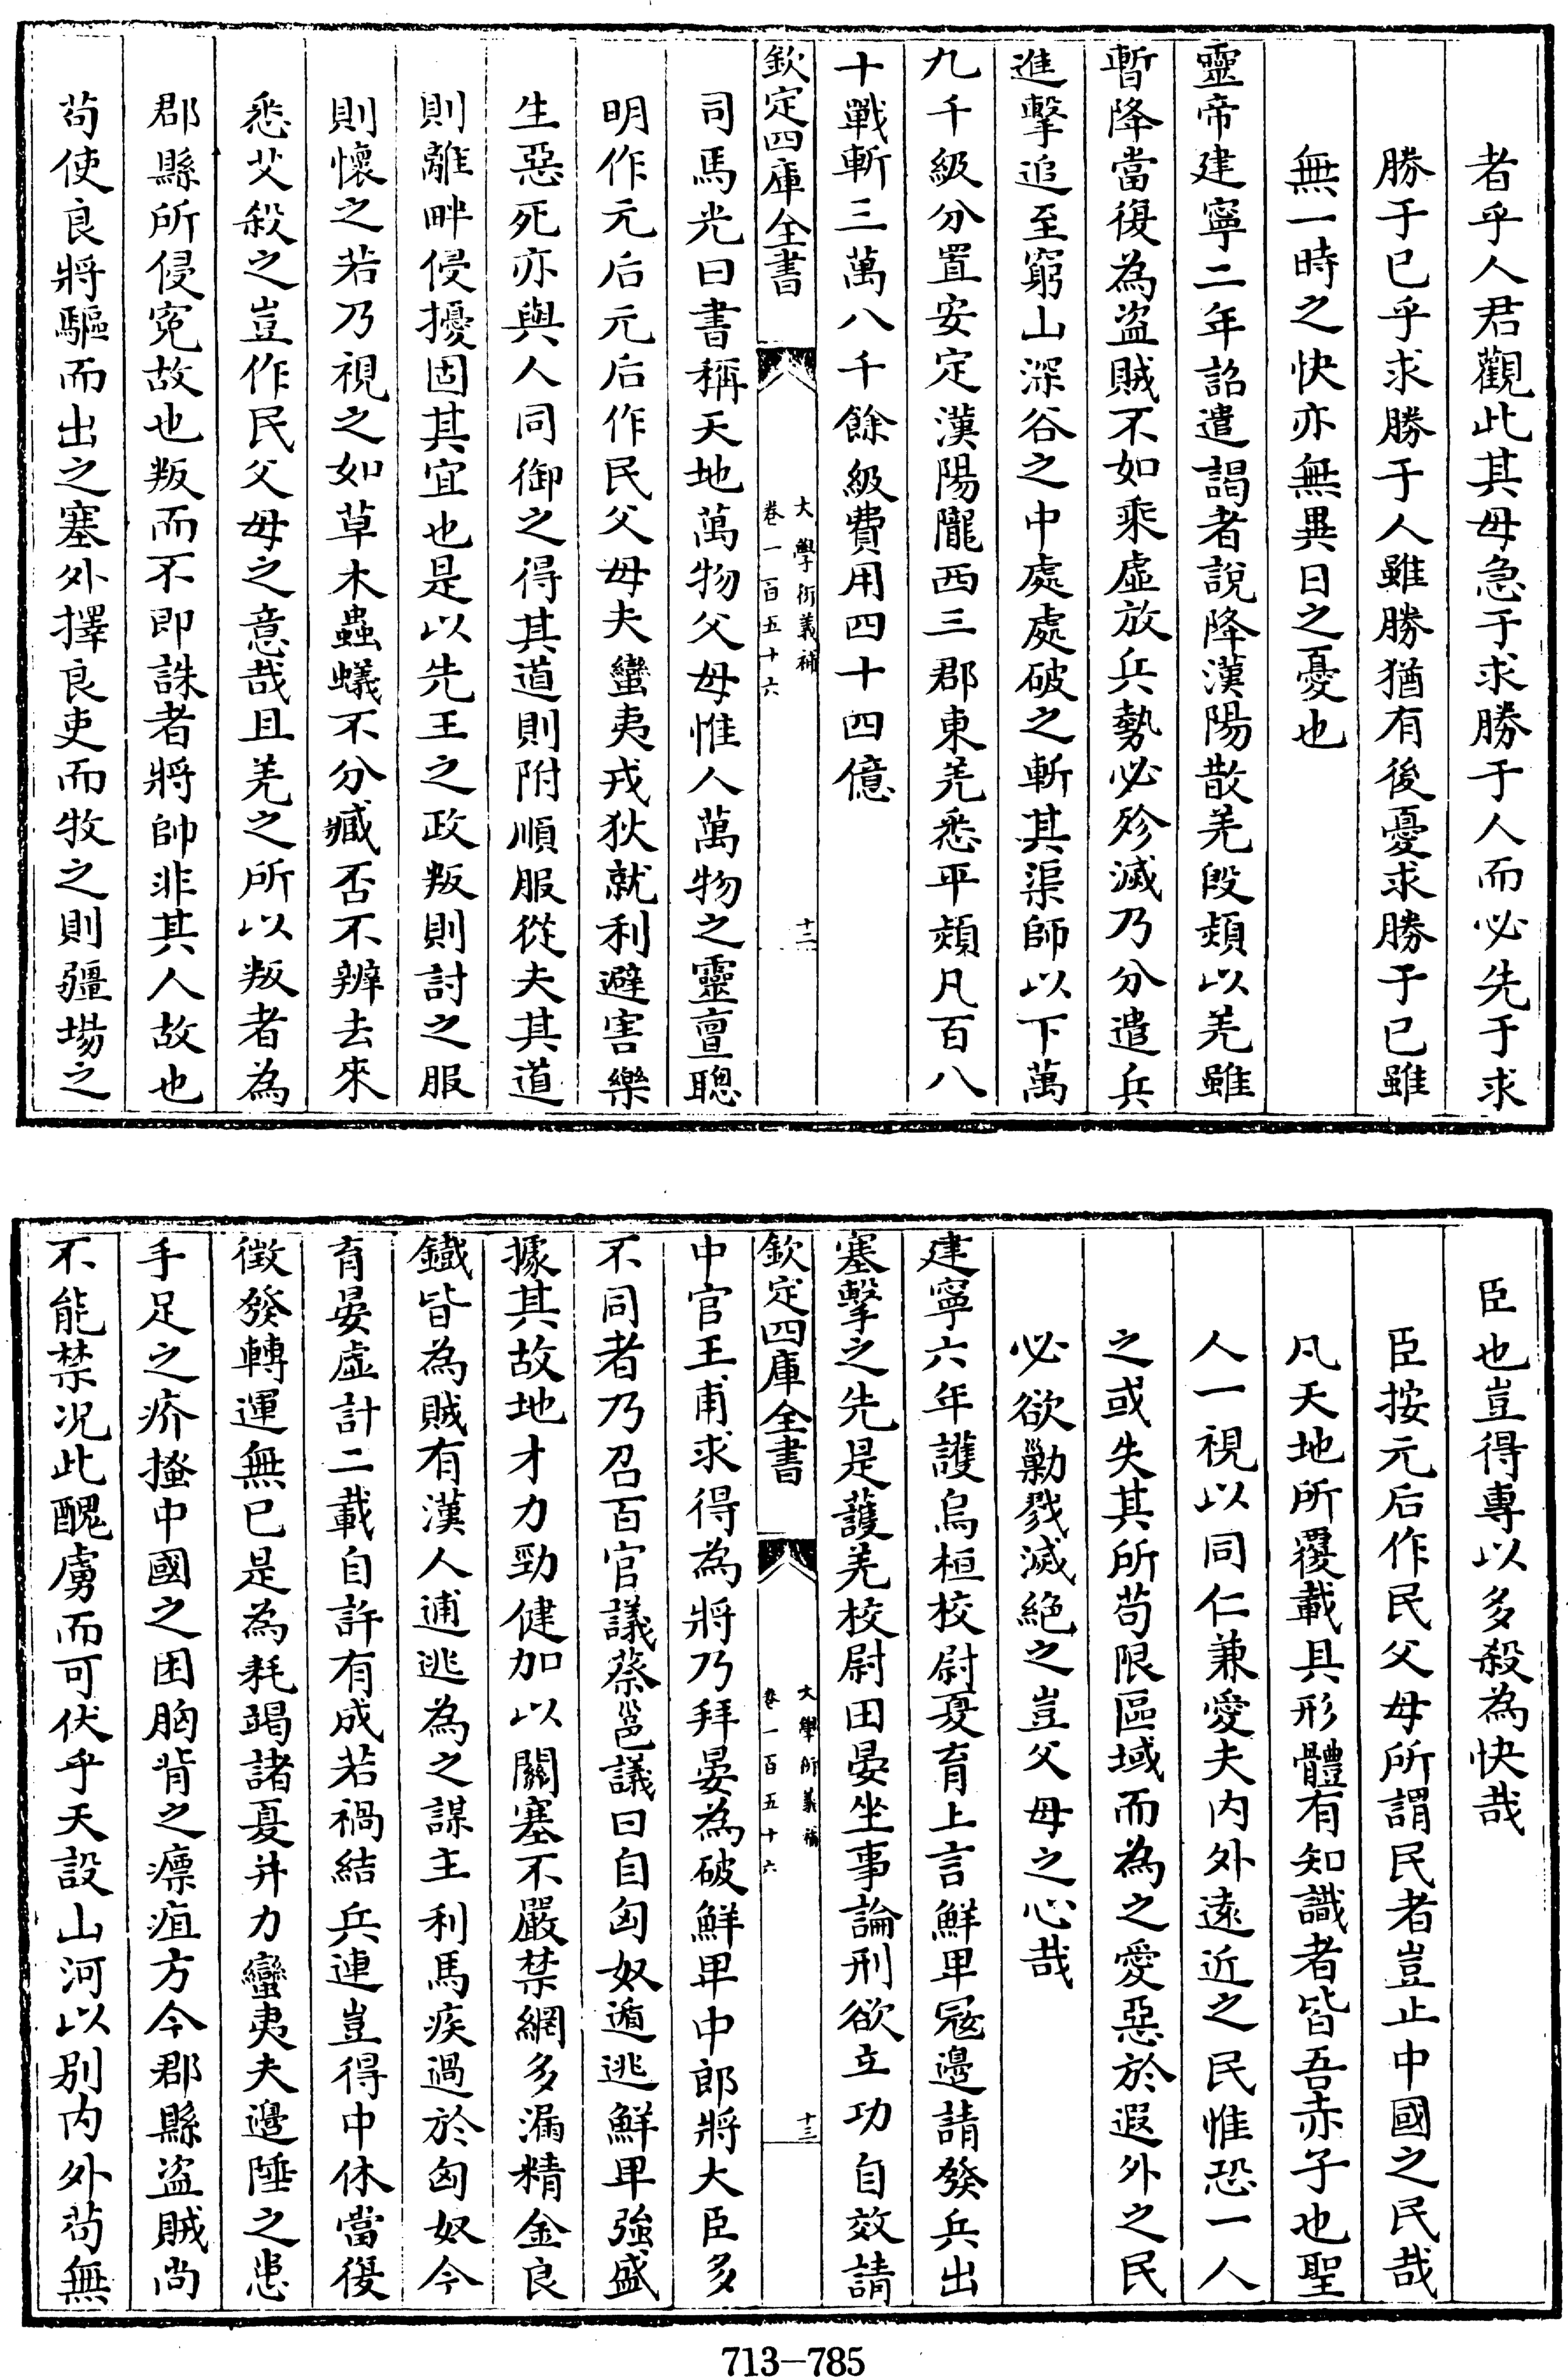 者乎人君觀此其毋急于求勝于人而必先于求
勝于已乎求勝于人雖勝猶有後憂求勝于已雖
無一時之快亦無異日之憂也
靈帝建寧二年詔遣謁者說降漢陽散羌段熲以羌雖
暫降當復為盜賊不如乘虛放兵勢必殄滅乃分遣兵
進擊追至窮山深谷之中處處破之斬其渠師以下萬
九千級分置安定漢陽隴西三郡東羌悉平熲凡百八
十戰斬三萬八千餘級費用四十四億
欽定四庫全書
大學衍義補
卷一百五十六
十二
司馬光曰書稱天地萬物父母惟人萬物之靈亶聰
明作元后元后作民父母夫蠻夷戎狄就利避害樂
生惡死亦與人同御之得其道則附順服從失其道
則離畔侵擾固其宜也是以先王之政叛則討之服
則懷之若乃視之如草木蟲蟻不分臧否不辨去來
悉艾殺之豈作民父母之意哉且羌之所以叛者為
郡縣所侵寃故也叛而不即誅者將帥非其人故也
苟使良將驅而出之塞外擇良吏而牧之則疆埸之
臣也豈得專以多殺為快哉
臣按元后作民父母所謂民者豈止中國之民哉
凡天地所覆載具形體有知識者皆吾赤子也聖
人一視以同仁兼愛夫內外遠近之民惟恐一人
之或失其所苟限區域而為之愛惡於遐外之民
必欲勦戮滅絕之豈父母之心哉
建寧六年護烏桓校尉夏育上言鮮卑寇邊請發兵出
塞擊之先是護羌校尉田晏坐事論刑欲立功自效請
欽定四庫全書
大學衍義補
卷一百五十六
十三
中官王甫求得為將乃拜晏為破鮮卑中郎將大臣多
不同者乃召百官議蔡邕議曰自匈奴遁逃鮮卑強盛
據其故地才力勁健加以關塞不嚴禁網多漏精金良
鐵皆為賊有漢人逋逃為之謀主利馬疾過於匈奴今
育晏虛計二載自許有成若禍結兵連豈得中休當復
徵發轉運無已是為耗竭諸夏并力蠻夷夫邊陲之患
手足之疥搔中國之困胸背之瘭疽方今郡縣盜賊尚
不能禁况此醜虜而可伏乎天設山河以別內外苟無
713—785